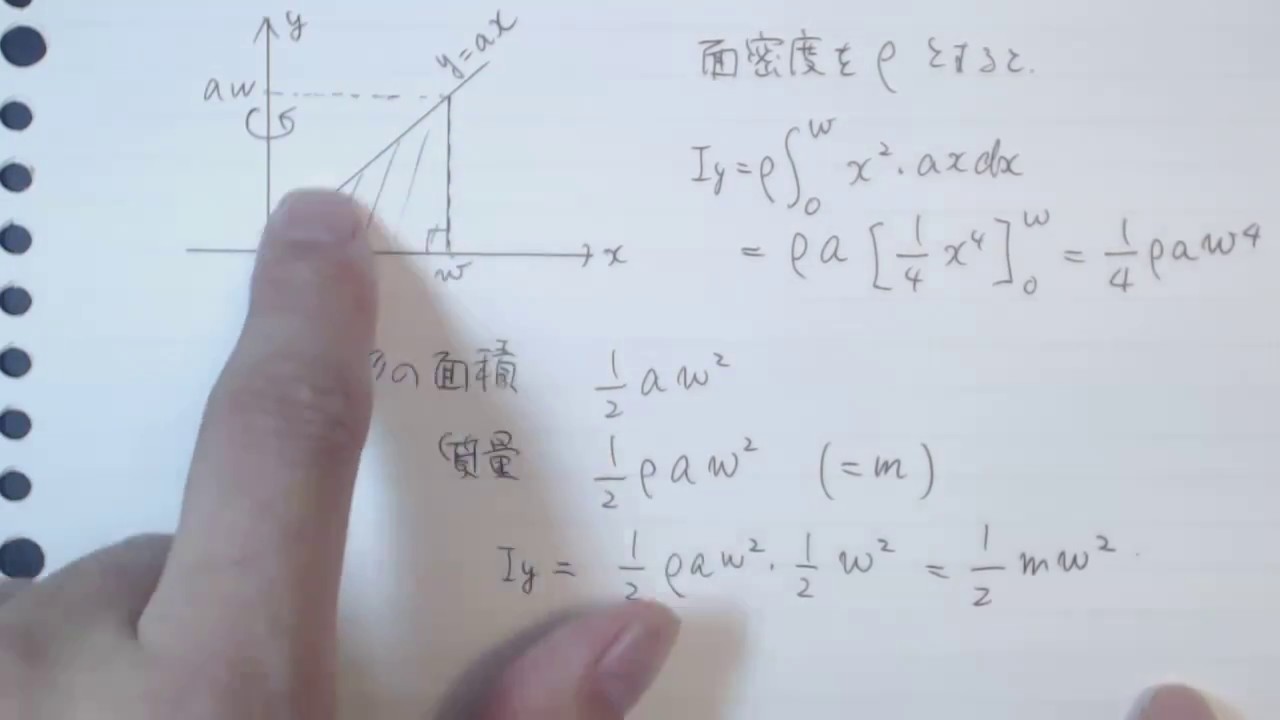 y
y=ax
aw
x
w
面密度をρとすると.
Iy=ρ∫₀ʷ x²・axdx
= ρa [1/4 x⁴]₀ʷ = 1/4 ρaw⁴
の面積 1/2 aw²
質量 1/2 ρaw² (=m)
Iy = 1/2 ρaw²・1/2 w² = 1/2 mw²